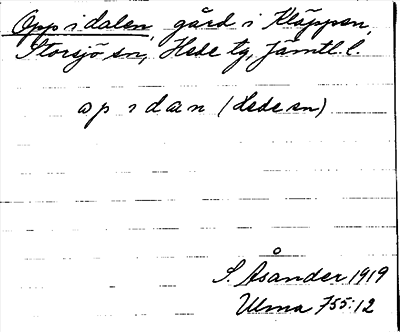 Opp i dalen, gård i Kläppen,
Storsjö sn, Hede tg, Jämtl. l.
ap i dan (Hede sn)
S. Åsander 1919
Ulma 755:12